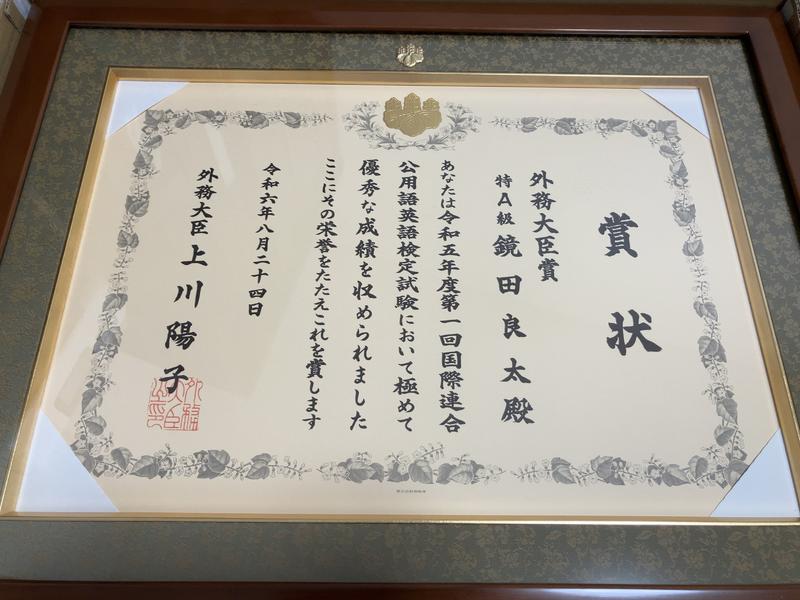 賞状
外務大臣賞
特A級 鏡田良太殿
あなたは令和五年度第一回国際連合
公用語英語検定試験において極めて
優秀な成績を収められました
ここにその栄誉をたたえこれを賞します
令和六年八月二十四日
外務大臣 上川陽子
外務大臣之印